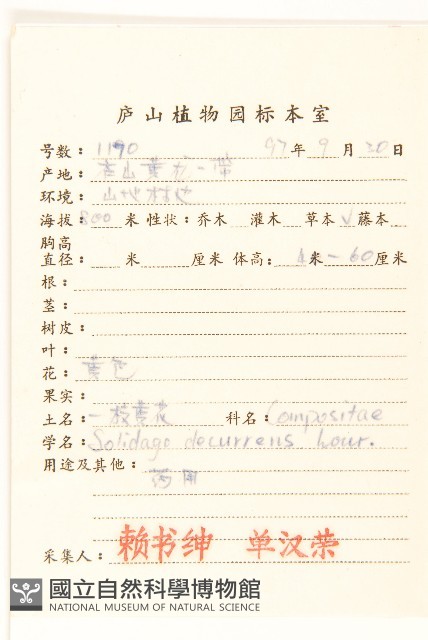 庐山植物园标本室
号数: 1190 97年9月30日
产地: 庐山黄龙一带
环境: 山地林地
海拔: 800 米 性状: 乔木 灌木 草本√藤本
胸高
直径: 米 厘米 体高: 米—60厘米
根:
茎:
树皮:
叶:
花: 黄色
果实:
土名: 一枝黄花 科名: Compositae
学名: Solidago decurrens Lour.
用途及其他: 药用
采集人: 赖书绅 单汉荣
國立自然科學博物館
NATIONAL MUSEUM OF NATURAL SCIENCE